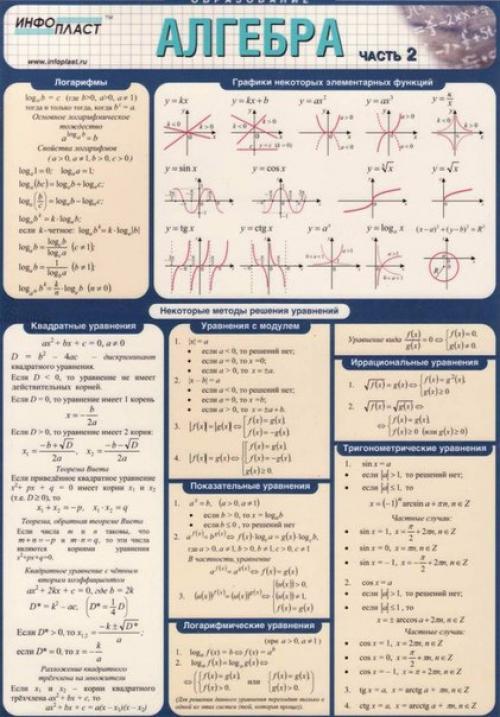 ОБРАЗОВАНИЕ
ИНФО
ПЛАСТ
™
www.infoplast.ru
АЛГЕБРА
ЧАСТЬ 2
Логарифмы
logₐb = c (где b>0, a>0, a≠1)
тогда и только тогда, когда bᶜ = a.
Основное логарифмическое
тождество
a^(logₐb) = b
Свойства логарифмов
(a > 0, a ≠ 1, b > 0, c > 0)
logₐ1 = 0; logₐa = 1;
logₐ(bc) = logₐb + logₐc;
logₐ(b/c) = logₐb − logₐc;
logₐbᵏ = k·logₐb;
если k-четное: logₐbᵏ = k·logₐ|b|
Графики некоторых элементарных функций
y = kx
y = kx+b
y = ax²
y = ax³
y = k/x
k<0
k>0
a>0
a<0
y = sin x
y = cos x
y = ∛x
y = √x
y = tg x
y = ctg x
y = aˣ
y = logₐ x
(x−a)² + (y−b)² = R²
Некоторые методы решения уравнений
Квадратные уравнения
ax² + bx + c = 0, a ≠ 0
D = b² − 4ac – дискриминант
квадратного уравнения.
Если D < 0, то уравнение не имеет
действительных корней.
Если D = 0, то уравнение имеет 1 корень
x = −b/2a
Если D > 0, то уравнение имеет 2 корня:
x₁ = (−b+√D)/2a, x₂ = (−b−√D)/2a
Теорема Виета
Если приведённое квадратное уравнение
x²+ px + q = 0 имеет корни x₁ и x₂
(т.е. D ≥ 0), то
x₁ + x₂ = −p, x₁ · x₂ = q
Теорема, обратная теореме Виета
Если числа m и n таковы, что
m+n=−p и m·n=q, то эти числа
являются корнями уравнения
x²+px+q=0.
Квадратное уравнение с чётным
вторым коэффициентом
ax² + 2kx + c = 0, где b = 2k
D* = k² − ac, (D* = 1/4 D)
Если D* > 0, то x₁,₂ = (−k±√D*)/a;
если D* = 0, то x = −k/a
Разложение квадратного
трёхчлена на множители
Если x₁ и x₂ – корни квадратного
трёхчлена ax² + bx + c, то
ax² + bx + c = a(x−x₁)(x−x₂)
Уравнения с модулем
1. |x| = a
• если a < 0, то решений нет;
• если a = 0, то x =0;
• если a > 0, то x = ±a.
2. |x − b| = a
• если a < 0, то решений нет;
• если a = 0, то x =b;
• если a > 0, то x = ±a + b.
Показательные уравнения
1. aˣ = b, (a > 0, a≠1)
• если b > 0, то x = logₐb
• если b ≤ 0, то решений нет
где a > 0, a ≠ 1, b > 0, b ≠ 1, c > 0, c ≠ 1
В частности, уравнение
a^f(x) = a^g(x) ⇔ f(x) = g(x)
Логарифмические уравнения
(при a > 0, a ≠ 1)
1. logₐf(x) = b ⇔ f(x) = aᵇ
2. logₐf(x) = logₐg(x) ⇔
или
(Для решения данного уравнения переходят только к
одной из этих систем (той, которая проще)).
Уравнение вида f(x)/g(x) = 0 ⇔ {f(x) = 0, g(x) ≠ 0.
Иррациональные уравнения
1. √f(x) = g(x) ⇔
2. √f(x) = √g(x) ⇔
Тригонометрические уравнения
1. sin x = a
• если |a| > 1, то решений нет;
• если |a| ≤ 1, то
x = (−1)ⁿ arcsin a + πn, n ∈ Z
Частные случаи:
• sin x = 1, x = π/2 + 2πn, n ∈ Z
• sin x = 0, x = πn, n ∈ Z
• sin x = −1, x = −π/2 + 2πn, n ∈ Z
2. cos x = a
• если |a| > 1, то решений нет;
• если |a| ≤ 1, то
x = ± arccos a + 2πn, n ∈ Z
Частные случаи:
• cos x = 1, x = 2πn, n ∈ Z
• cos x = 0, x = π/2 + πn, n ∈ Z
• cos x = −1, x = π + 2πn, n ∈ Z
3. tg x = a, x = arctg a + πn, n ∈ Z
4. ctg x = a, x = arcctg a + πn, n ∈ Z